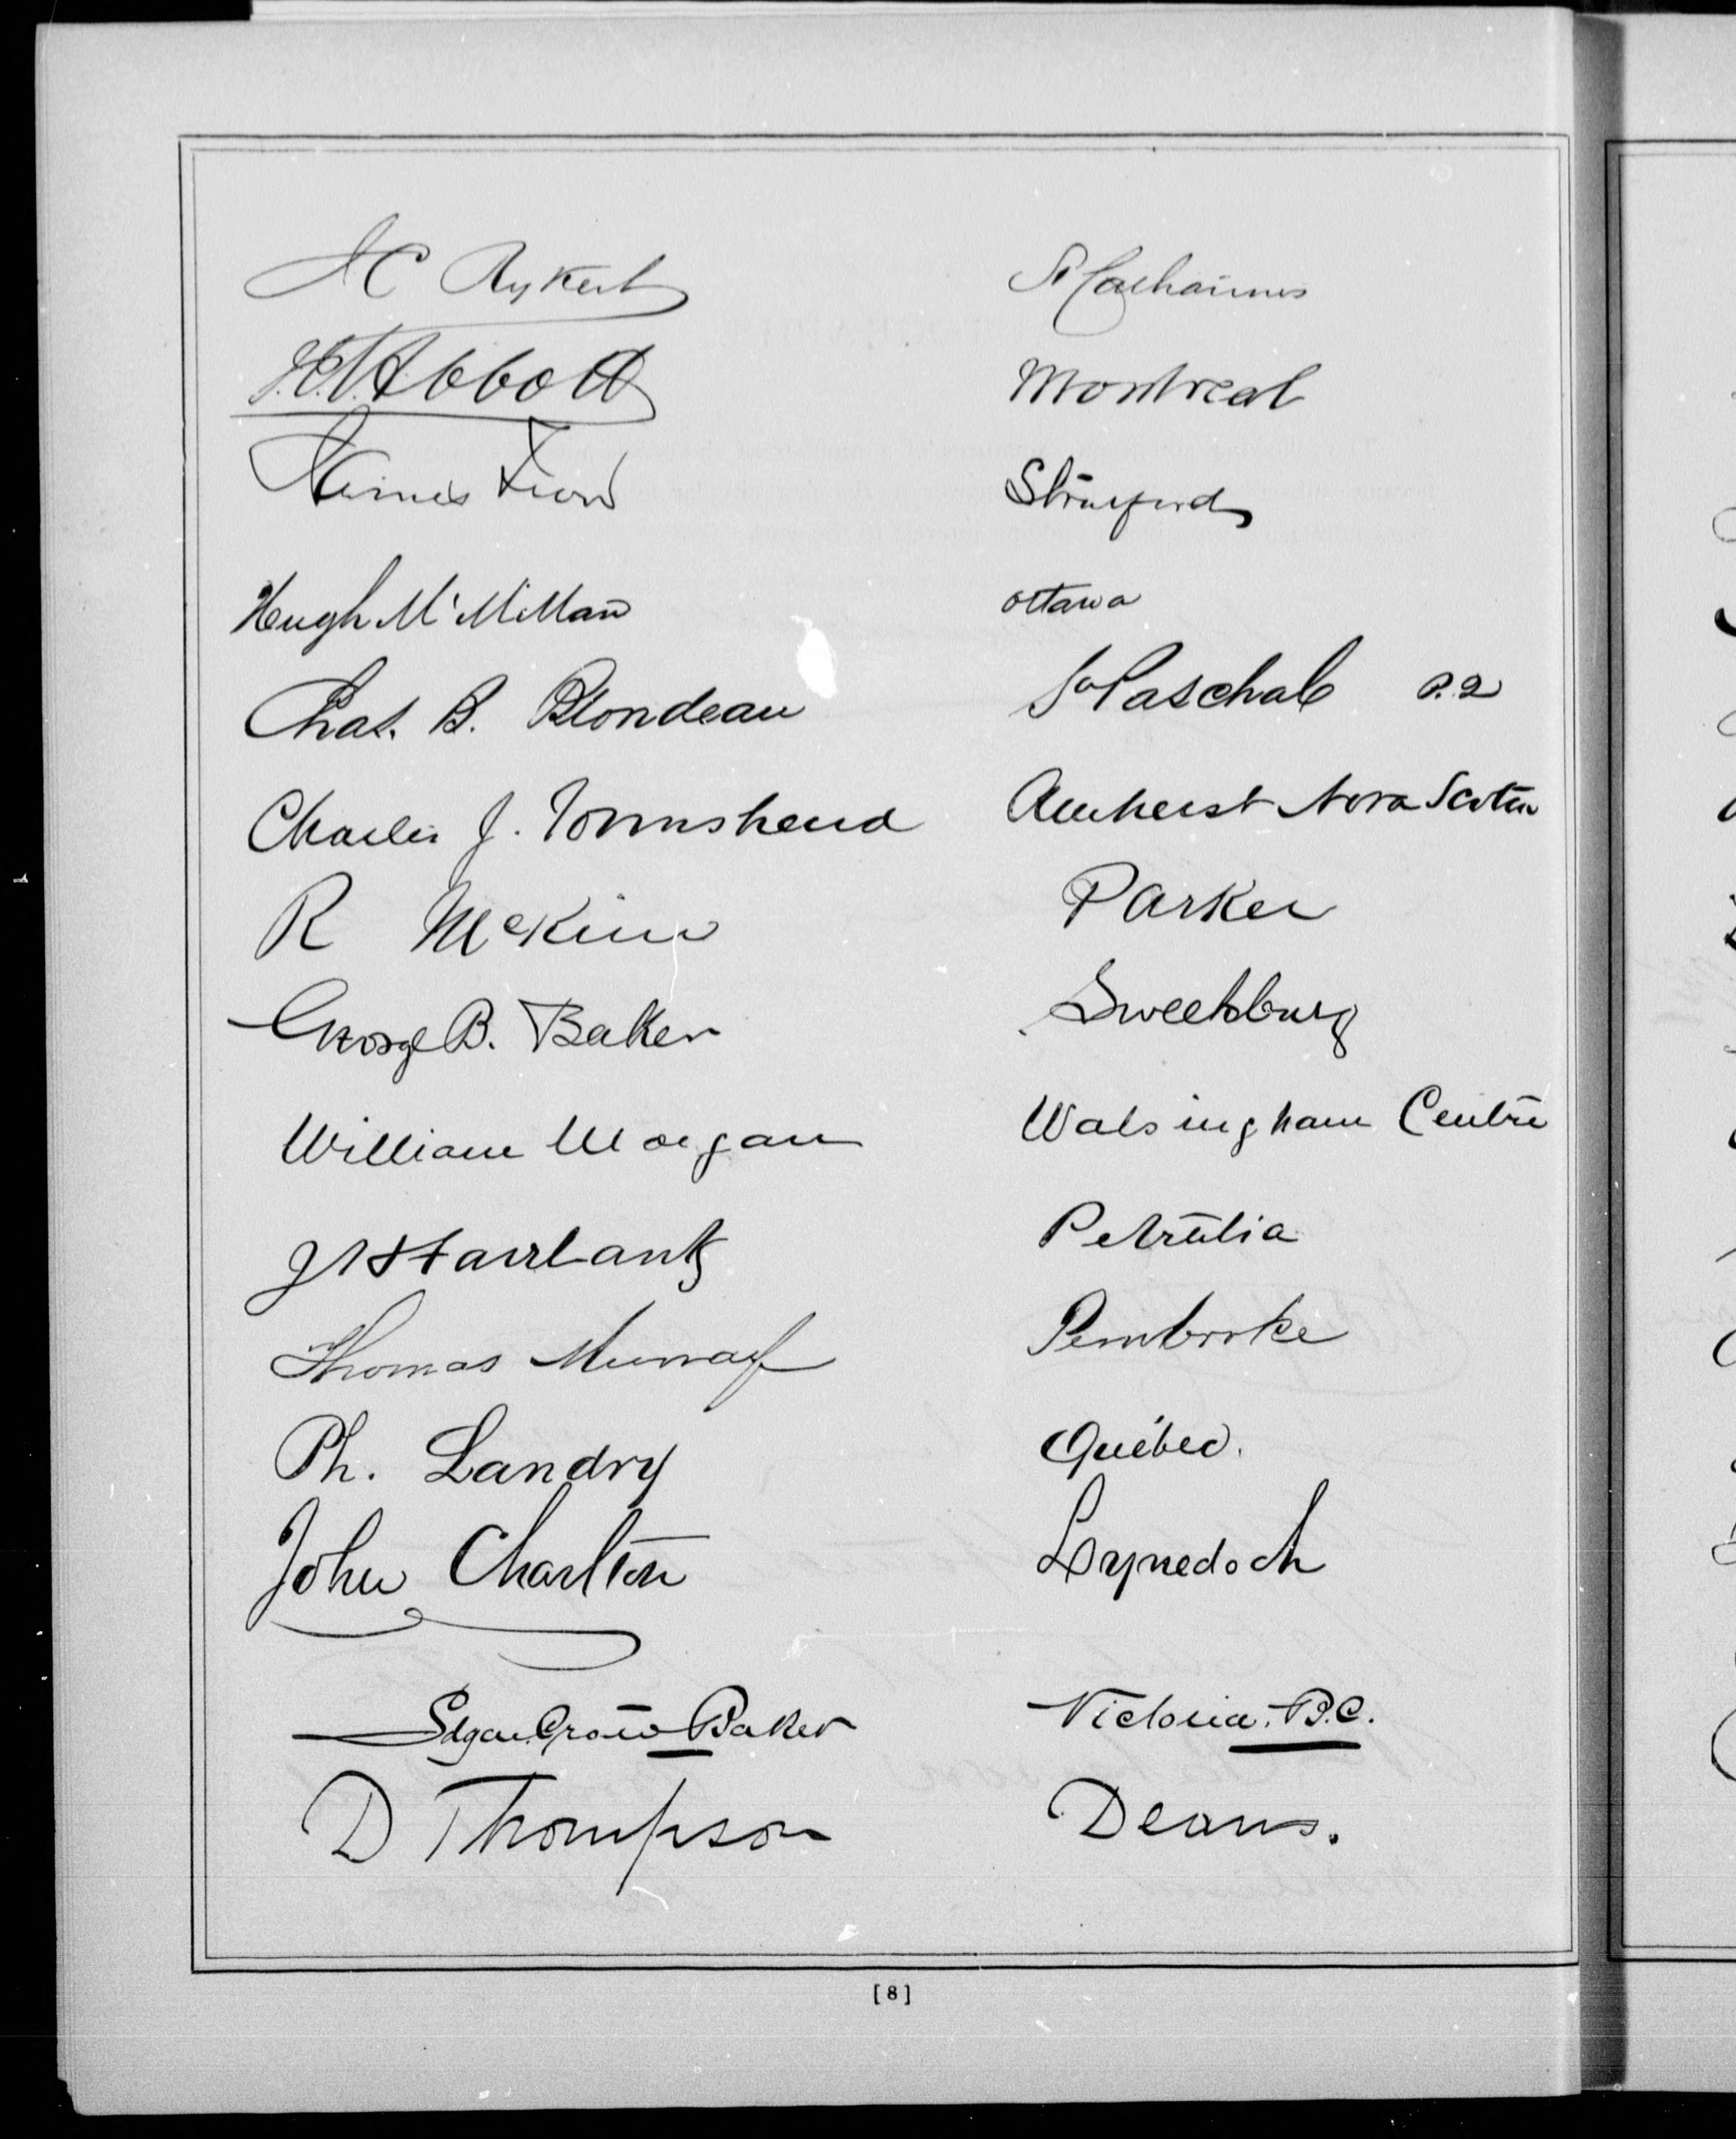 J C Rykert St Catharines
J.J.C. Abbott Montreal
James Trow Stratford
Hugh McMillan Ottawa
Chas. B. Blondeau St Paschal P.Q
Charles J. Townshend Amherst Nova Scotia
R McKim Parker
George B. Baker Sweetsburg
William Morgan Walsingham Centre
J H Fairbank Petrolia
Thomas Murray Pembroke
Ph. Landry Québec.
John Charlton Lynedoch
Edgar Crow Baker Victoria. B.C.
D Thompson Deans.
[8]